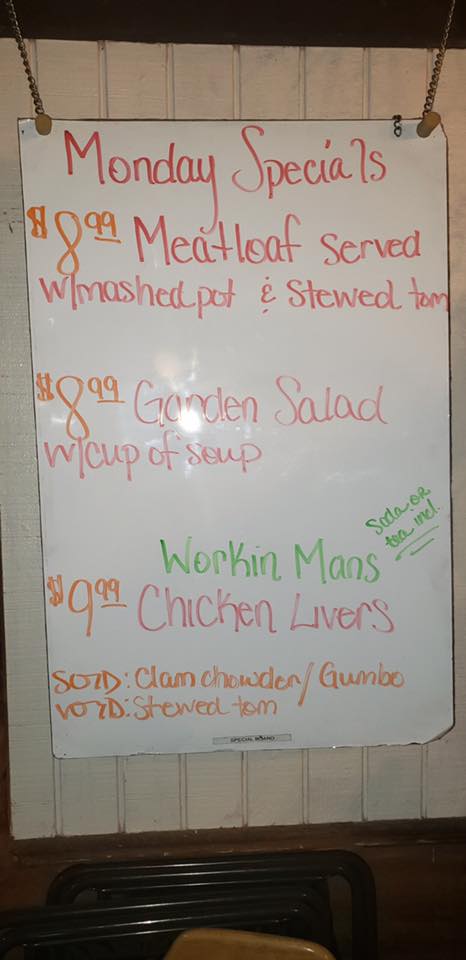 Monday Specials
$8.99 Meatloaf served
w/mashed pot & Stewed tom
$8.99 Garden Salad
w/cup of soup
Soda OR
tea incl.
Workin Mans
$9.99 Chicken Livers
SOTD: Clam chowder/Gumbo
VOTD: Stewed tom
SPECIAL BOARD